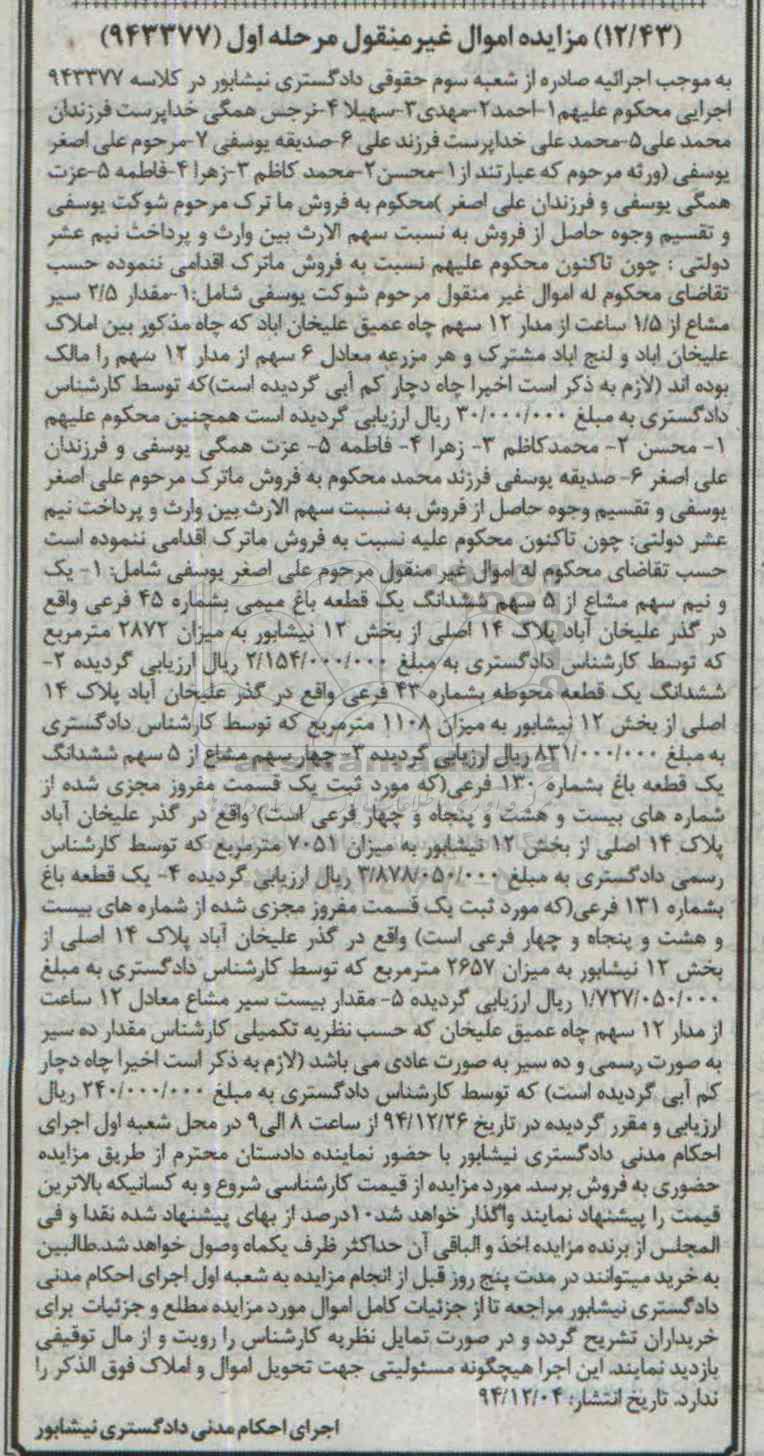 (۱۲/۴۳) مزایده اموال غیرمنقول مرحله اول (۹۴۳۳۷۷)
به موجب اجرائیه صادره از شعبه سوم حقوقی دادگستری نیشابور در کلاسه ۹۴۳۳۷۷
اجرایی محکوم علیهم ۱-احمد۲-مهدی۳-سهیلا ۴-نرجس همگی خداپرست فرزندان
محمد علی۵-محمد علی خداپرست فرزند علی ۶-صدیقه یوسفی ۷-مرحوم علی اصغر
یوسفی (ورثه مرحوم که عبارتند از۱-محسن۲-محمد کاظم ۳-زهرا ۴-فاطمه ۵-عزت
همگی یوسفی و فرزندان علی اصغر )محکوم به فروش ما ترک مرحوم شوکت یوسفی
و تقسیم وجوه حاصل از فروش به نسبت سهم الارث بین وارث و پرداخت نیم عشر
دولتی : چون تاکنون محکوم علیهم نسبت به فروش ماترک اقدامی ننموده حسب
تقاضای محکوم له اموال غیر منقول مرحوم شوکت یوسفی شامل:۱-مقدار ۲/۵ سیر
مشاع از ۱/۵ ساعت از مدار ۱۲ سهم چاه عمیق علیخان اباد که چاه مذکور بین املاک
علیخان اباد و لنج اباد مشترک و هر مزرعه معادل ۶ سهم از مدار ۱۲ سهم را مالک
بوده اند (لازم به ذکر است اخیرا چاه دچار کم آبی گردیده است)که توسط کارشناس
دادگستری به مبلغ ۳۰/۰۰۰/۰۰۰ ریال ارزیابی گردیده است همچنین محکوم علیهم
۱- محسن ۲- محمدکاظم ۳- زهرا ۴- فاطمه ۵- عزت همگی یوسفی و فرزندان
علی اصغر ۶- صدیقه یوسفی فرزند محمد محکوم به فروش ماترک مرحوم علی اصغر
یوسفی و تقسیم وجوه حاصل از فروش به نسبت سهم الارث بین وارث و پرداخت نیم
عشر دولتی: چون تاکنون محکوم علیه نسبت به فروش ماترک اقدامی ننموده است
حسب تقاضای محکوم له اموال غیر منقول مرحوم علی اصغر یوسفی شامل: ۱- یک
و نیم سهم مشاع از ۵ سهم ششدانگ یک قطعه باغ میمی بشماره ۴۵ فرعی واقع
در گذر علیخان آباد پلاک ۱۴ اصلی از بخش ۱۲ نیشابور به میزان ۲۸۷۲ مترمربع
که توسط کارشناس دادگستری به مبلغ ۲/۱۵۴/۰۰۰/۰۰۰ ریال ارزیابی گردیده ۲-
ششدانگ یک قطعه محوطه بشماره ۴۳ فرعی واقع در گذر علیخان آباد پلاک ۱۴
اصلی از بخش ۱۲ نیشابور به میزان ۱۱۰۸ مترمربع که توسط کارشناس دادگستری
به مبلغ ۸۳۱/۰۰۰/۰۰۰ ریال ارزیابی گردیده ۳- چهار سهم مشاع از ۵ سهم ششدانگ
یک قطعه باغ بشماره ۱۳۰ فرعی(که مورد ثبت یک قسمت مفروز مجزی شده از
شماره های بیست و هشت و پنجاه و چهار فرعی است) واقع در گذر علیخان آباد
پلاک ۱۴ اصلی از بخش ۱۲ نیشابور به میزان ۷۰۵۱ مترمربع که توسط کارشناس
رسمی دادگستری به مبلغ ۳/۸۷۸/۰۵۰/۰۰۰ ریال ارزیابی گردیده ۴- یک قطعه باغ
بشماره ۱۳۱ فرعی(که مورد ثبت یک قسمت مفروز مجزی شده از شماره های بیست
و هشت و پنجاه و چهار فرعی است) واقع در گذر علیخان آباد پلاک ۱۴ اصلی از
بخش ۱۲ نیشابور به میزان ۲۶۵۷ مترمربع که توسط کارشناس دادگستری به مبلغ
۱/۷۲۷/۰۵۰/۰۰۰ ریال ارزیابی گردیده ۵- مقدار بیست سیر مشاع معادل ۱۲ ساعت
از مدار ۱۲ سهم چاه عمیق علیخان که حسب نظریه تکمیلی کارشناس مقدار ده سیر
به صورت رسمی و ده سیر به صورت عادی می باشد (لازم به ذکر است اخیرا چاه دچار
کم آبی گردیده است) که توسط کارشناس دادگستری به مبلغ ۲۴۰/۰۰۰/۰۰۰ ریال
ارزیابی و مقرر گردیده در تاریخ ۹۴/۱۲/۲۶ از ساعت ۸ الی۹ در محل شعبه اول اجرای
احکام مدنی دادگستری نیشابور با حضور نماینده دادستان محترم از طریق مزایده
حضوری به فروش برسد. مورد مزایده از قیمت کارشناسی شروع و به کسانیکه بالاترین
قیمت را پیشنهاد نمایند واگذار خواهد شد.۱۰درصد از بهای پیشنهاد شده نقدا و فی
المجلس از برنده مزایده اخذ و الباقی آن حداکثر ظرف یکماه وصول خواهد شد.طالبین
به خرید میتوانند در مدت پنج روز قبل از انجام مزایده به شعبه اول اجرای احکام مدنی
دادگستری نیشابور مراجعه تا از جزئیات کامل اموال مورد مزایده مطلع و جزئیات برای
خریداران تشریح گردد و در صورت تمایل نظریه کارشناس را رویت و از مال توقیفی
بازدید نمایند. این اجرا هیچگونه مسئولیتی جهت تحویل اموال و املاک فوق الذکر را
ندارد. تاریخ انتشار: ۹۴/۱۲/۰۴
اجرای احکام مدنی دادگستری نیشابور